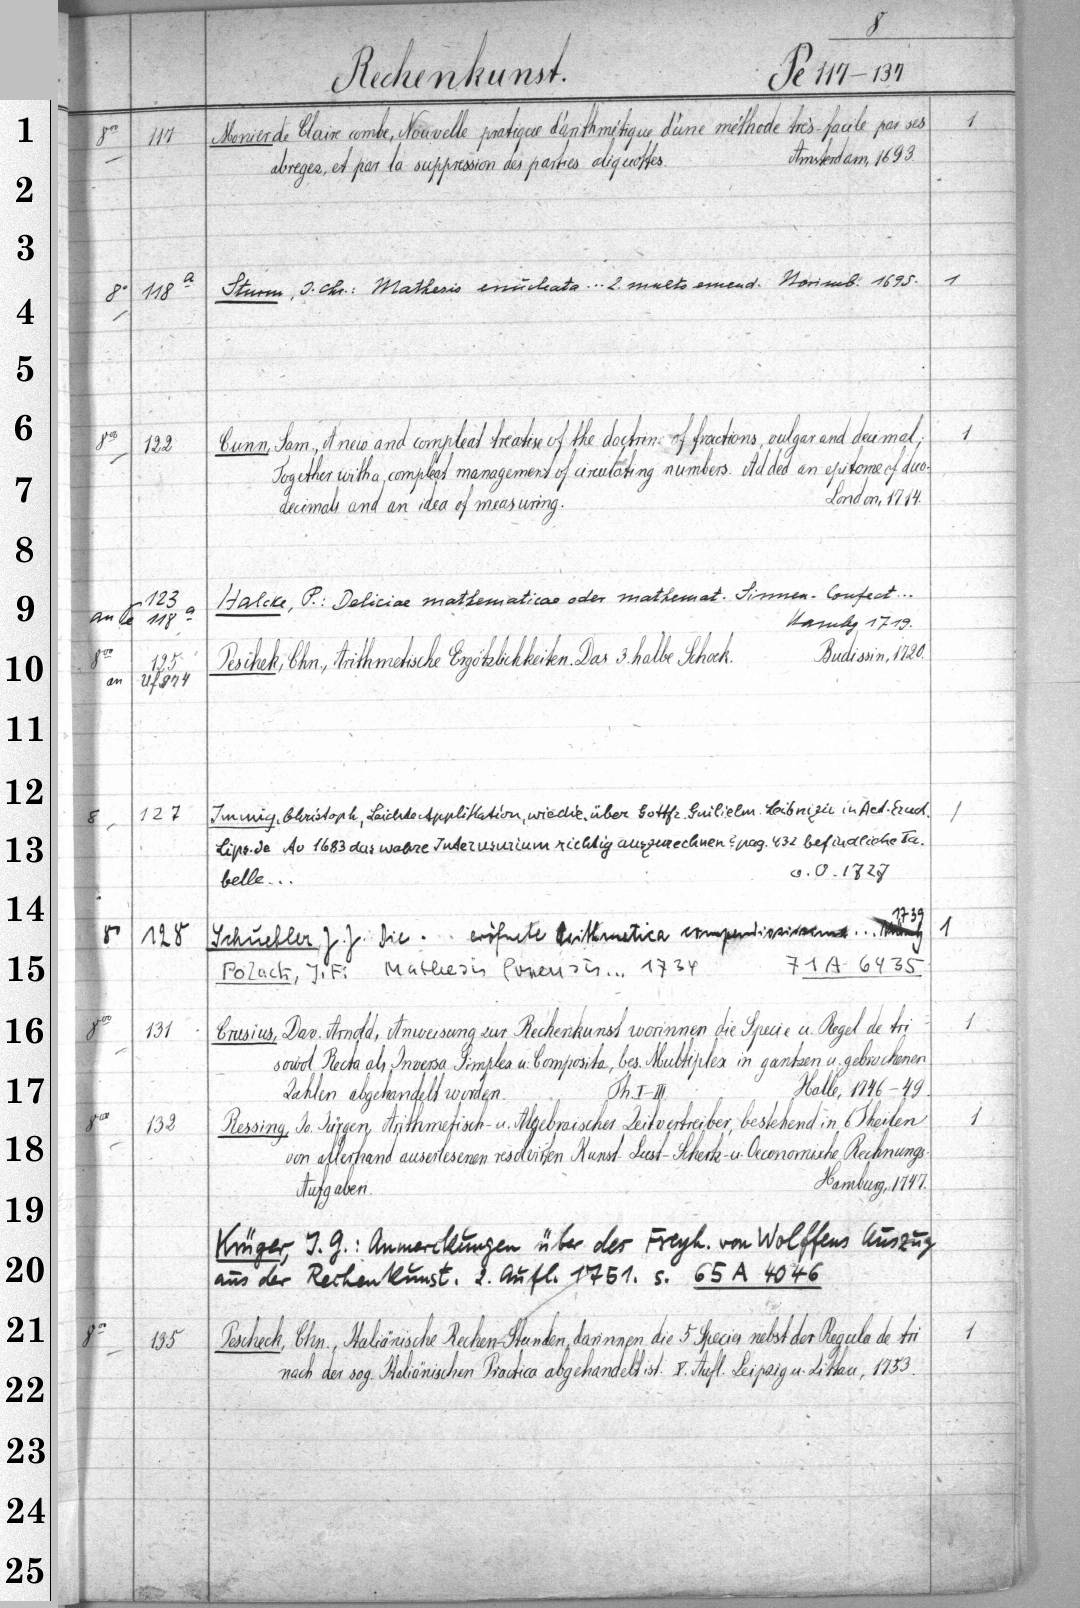 8
Rechenkunst. Pe 117-137
1
8vo 117 Monier de Claire combe, Nouvelle pratique d'arithmétique d'une méthode très-facile par ses 1
abreges, et par la suppression des parties aliquottes. Amsterdam, 1693.
2
3
8° 118a Sturm, J. Chr.: Mathesis enucleata ... 2. multo emend. Norimb. 1695. 1
4
5
6
8vo 122 Cunn, Sam., A new and compleat treatise of the doctrin of fractions, vulgar and decimal; 1
Together with a compleat management of circulating numbers. Added an epitome of duo-
7
decimals and an idea of measuring. London, 1714.
8
123 Halcke, P.: Deliciae mathematicae oder mathemat. Sinnen-Confect...
9
an 118a Hambg 1719.
8vo 125 Peschek, Chn., Arithmetische Ergötzlichkeiten. Das 3. halbe Schock. Budissin, 1720.
10
an Uf 874
11
12
8, 127 Immig, Christoph, Leichte Applikation, wie die über Gottfr. Guilielm. Leibnizii in Act. Erud. 1
Lips. de Ao 1683 das wahre Interusurium richtig auszurechnen pag. 432 befindliche Ta-
13
belle... o. O. 1727
14
1739
8° 128 Schuebler J. J. Die ... eröfnete Arithmetica compendiosissima ... 1
15
Polack, J. F. Mathesis forensis... 1734 71 A 6435
16
8vo 131 Crusius, Dav. Arnold, Anweisung zur Rechenkunst worinnen die Specie u. Regel de tri 1
sowol Recta als Inversa Simplex u. Composita, bes. Multiplex in gantzen u. gebrochenen
17
Zahlen abgehandelt worden. Th. I-III Halle, 1746-49.
8vo 132 Ressing, Jo. Jürgen, Arithmetisch- u. Algebraischer Zeitvertreiber, bestehend in 6 Theilen 1
18
von allerhand auserlesenen resolvirten Kunst- Lust- Scherk- u. Oeconomische Rechnungs-
Aufgaben. Hamburg, 1747.
19
Krüger, J. G.: Anmerckungen über des Freyh. von Wolffens Auszug
20
aus der Rechenkunst. 2. Aufl. 1751. s. 65 A 4046
21
8vo 135 Pescheck, Chn., Italiänische Rechen-Stunden, darinnen die 5 Species nebst der Regula de tri 1
nach der sog. Italiänischen Practica abgehandelt ist. V. Aufl. Leipzig u. Zittau, 1753.
22
23
24
25